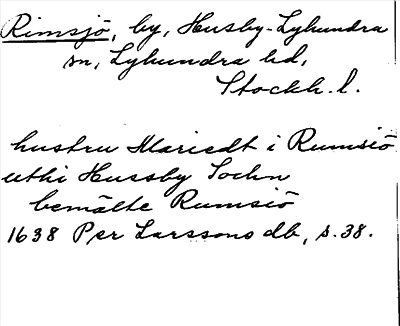 Rimsjö, by, Husby-Lyhundra
sn, Lyhundra hd,
Stockh. l.
hustru Mariedt i Rumsiö
uthi Hussby Sochn
bemälte Rumsiö
1638 Per Larssons db, s. 38.